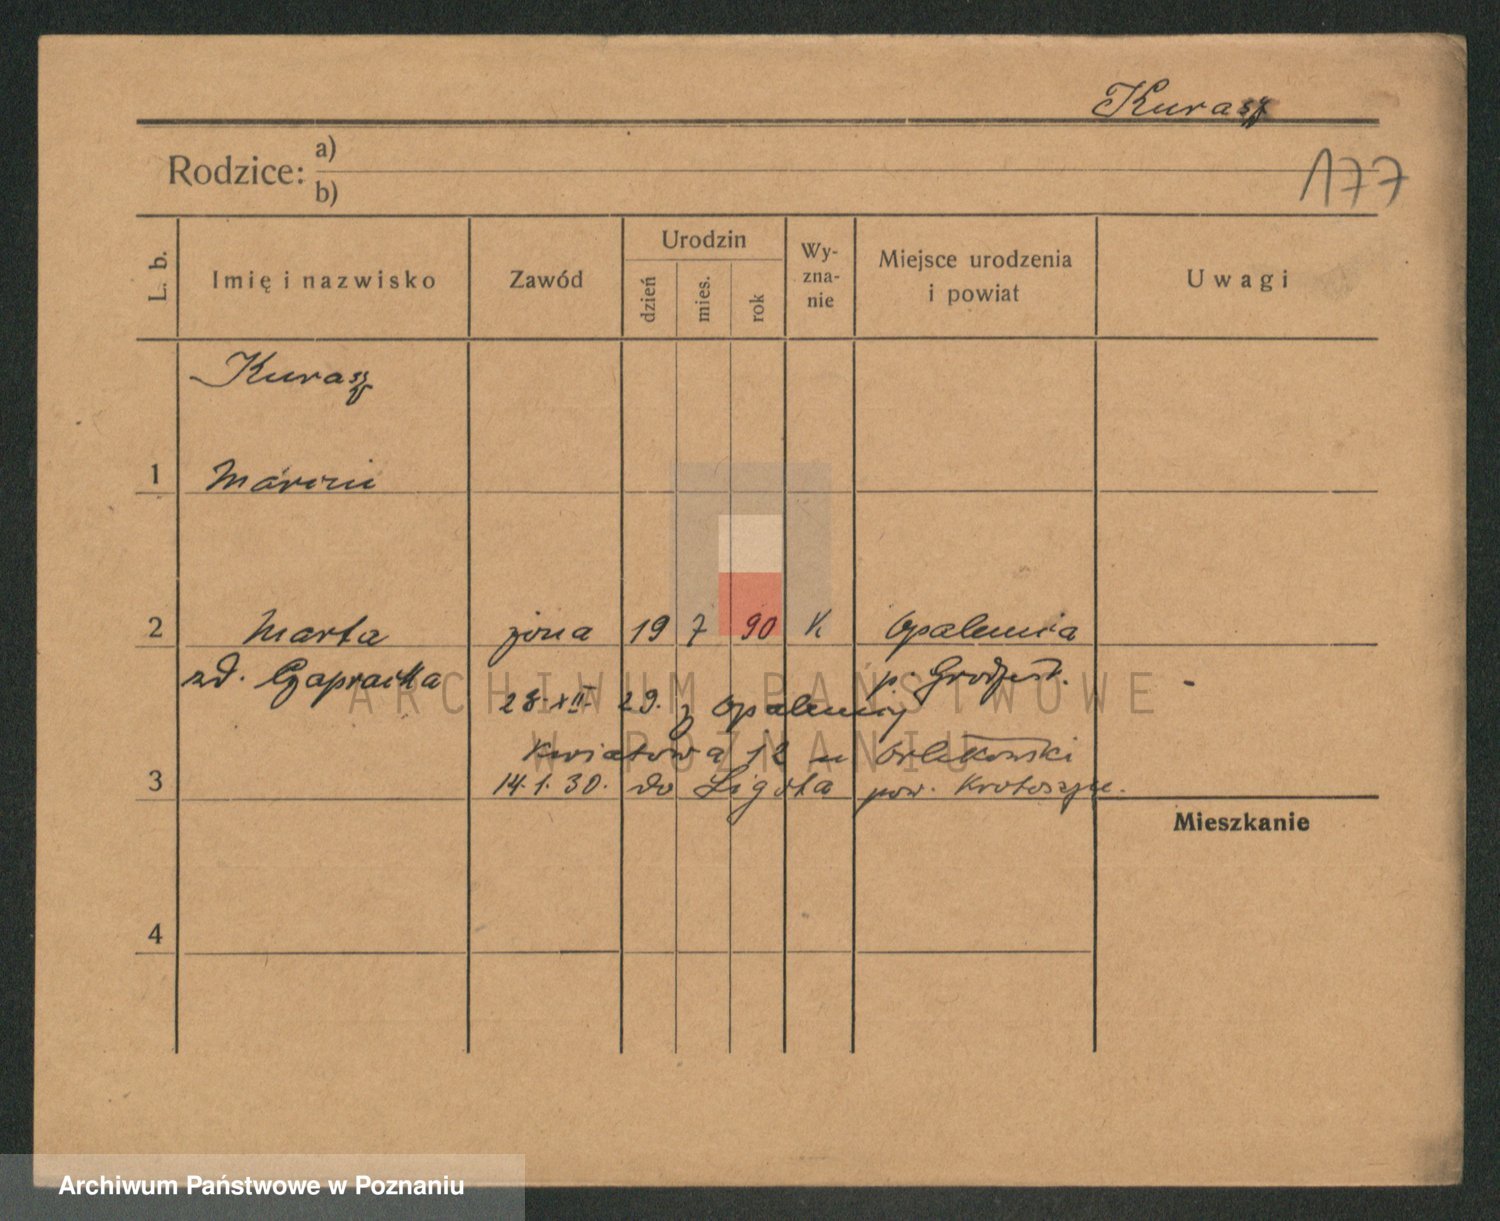 Kurasz
177
Rodzice: a)
b)
L. b.
Imię i nazwisko
Zawód
Urodzin
dzień
mies.
rok
Wy-
zna-
nie
Miejsce urodzenia
i powiat
Uwagi
Kurasz
1 Marcin
2 Marta żona 19 7 90 K Opalenica
zd. p. Grodzisk.
28. XII. 29. z Opalenicy
Kwiatowa 12 u Orlikowski
3 14.1.30. do Ligota pow. Krotoszyn.
Mieszkanie
4
ARCHIWUM PAŃSTWOWE
W POZNANIU
Archiwum Państwowe w Poznaniu